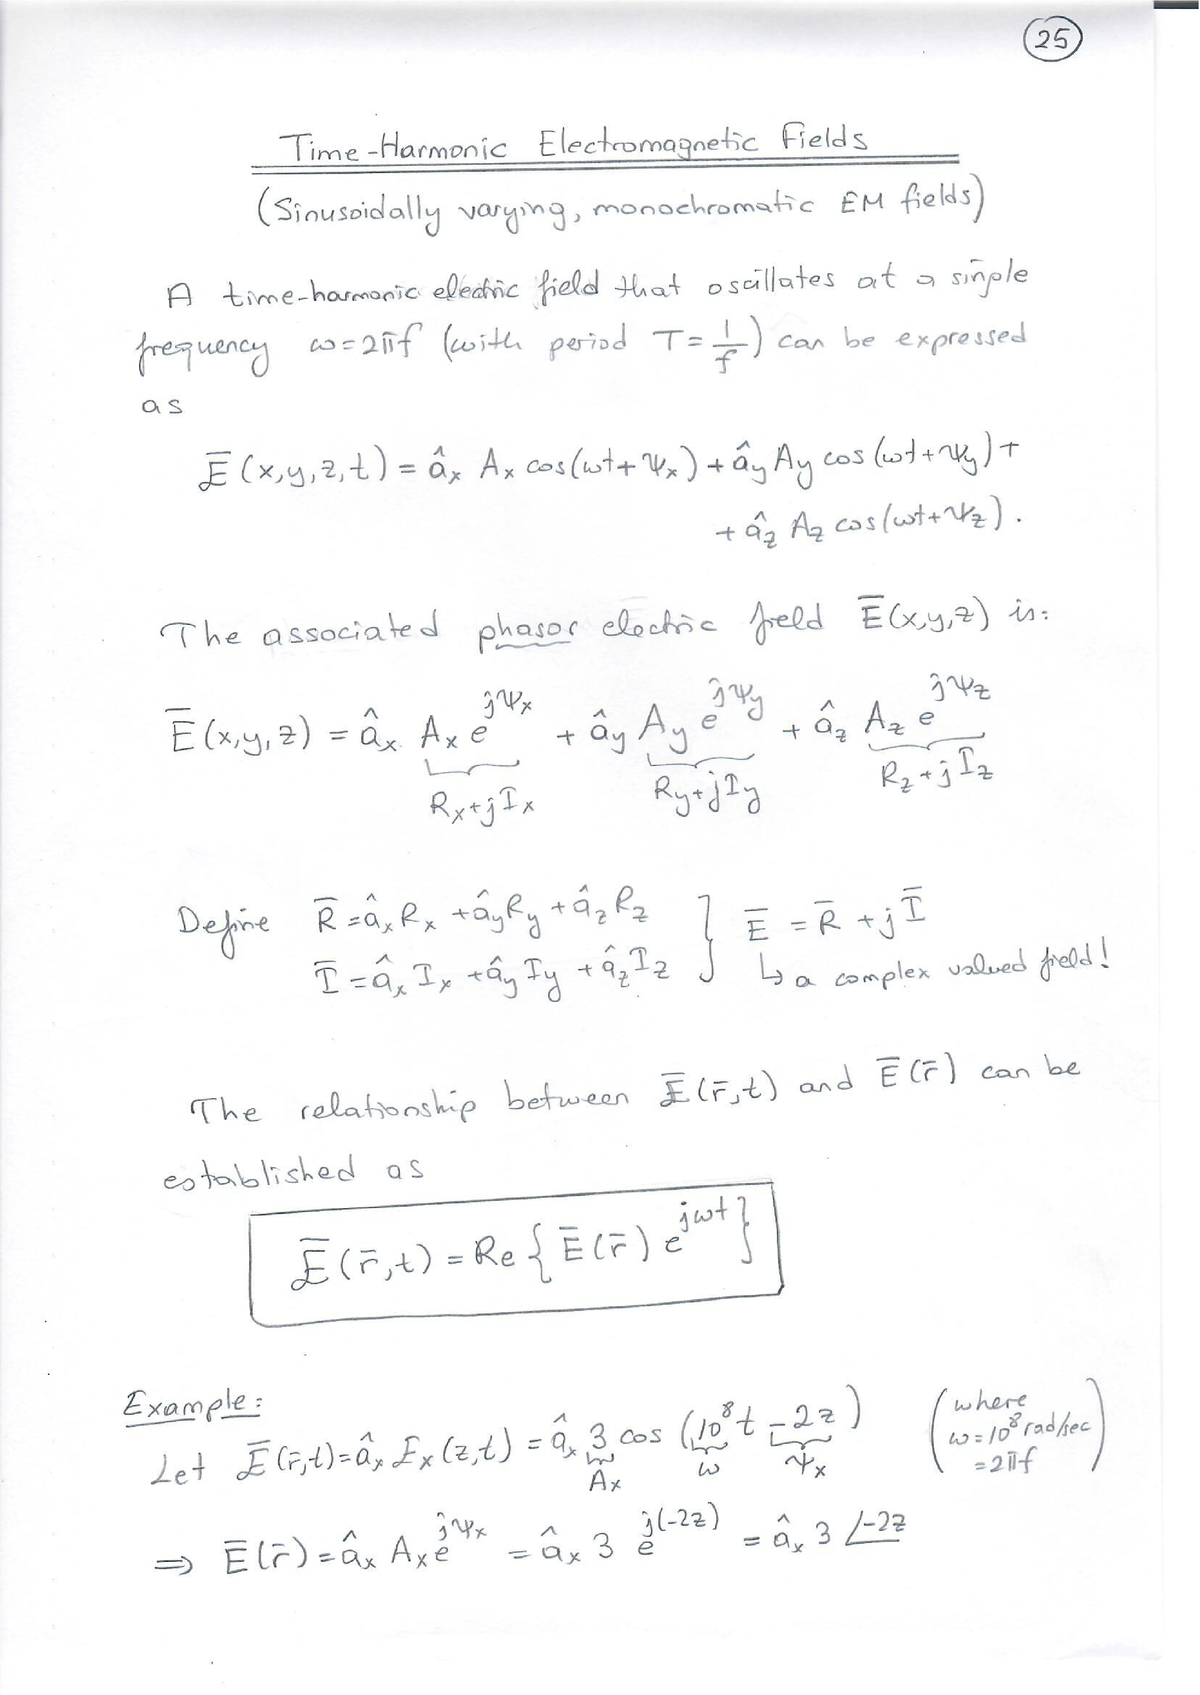 25
Time-Harmonic Electromagnetic Fields
(Sinusoidally varying, monochromatic EM fields)
A time-harmonic electric field that oscillates at a single
frequency ω=2πf (with period T=1/f) can be expressed
as
Ē(x,y,z,t) = â_x A_x cos(ωt+Ψ_x) + â_y A_y cos(ωt+Ψ_y) +
+ â_z A_z cos(ωt+Ψ_z).
The associated phasor electric field Ē(x,y,z) is:
Ē(x,y,z) = â_x A_x e^{jΨ_x} + â_y A_y e^{jΨ_y} + â_z A_z e^{jΨ_z}
R_x+jI_x R_y+jI_y R_z+jI_z
Define R̄ = â_x R_x + â_y R_y + â_z R_z } Ē = R̄ + jĪ
Ī = â_x I_x + â_y I_y + â_z I_z ↳ a complex valued field!
The relationship between Ē(r̄,t) and Ē(r̄) can be
established as
Ē(r̄,t) = Re{Ē(r̄) e^{jωt}}
Example:
Let Ē(r̄,t) = â_x E_x(z,t) = â_x 3 cos(10^8 t - 2z) (where ω=10^8 rad/sec =2πf)
A_x ω Ψ_x
⇒ Ē(r̄) = â_x A_x e^{jΨ_x} = â_x 3 e^{j(-2z)} = â_x 3 ∠-2z